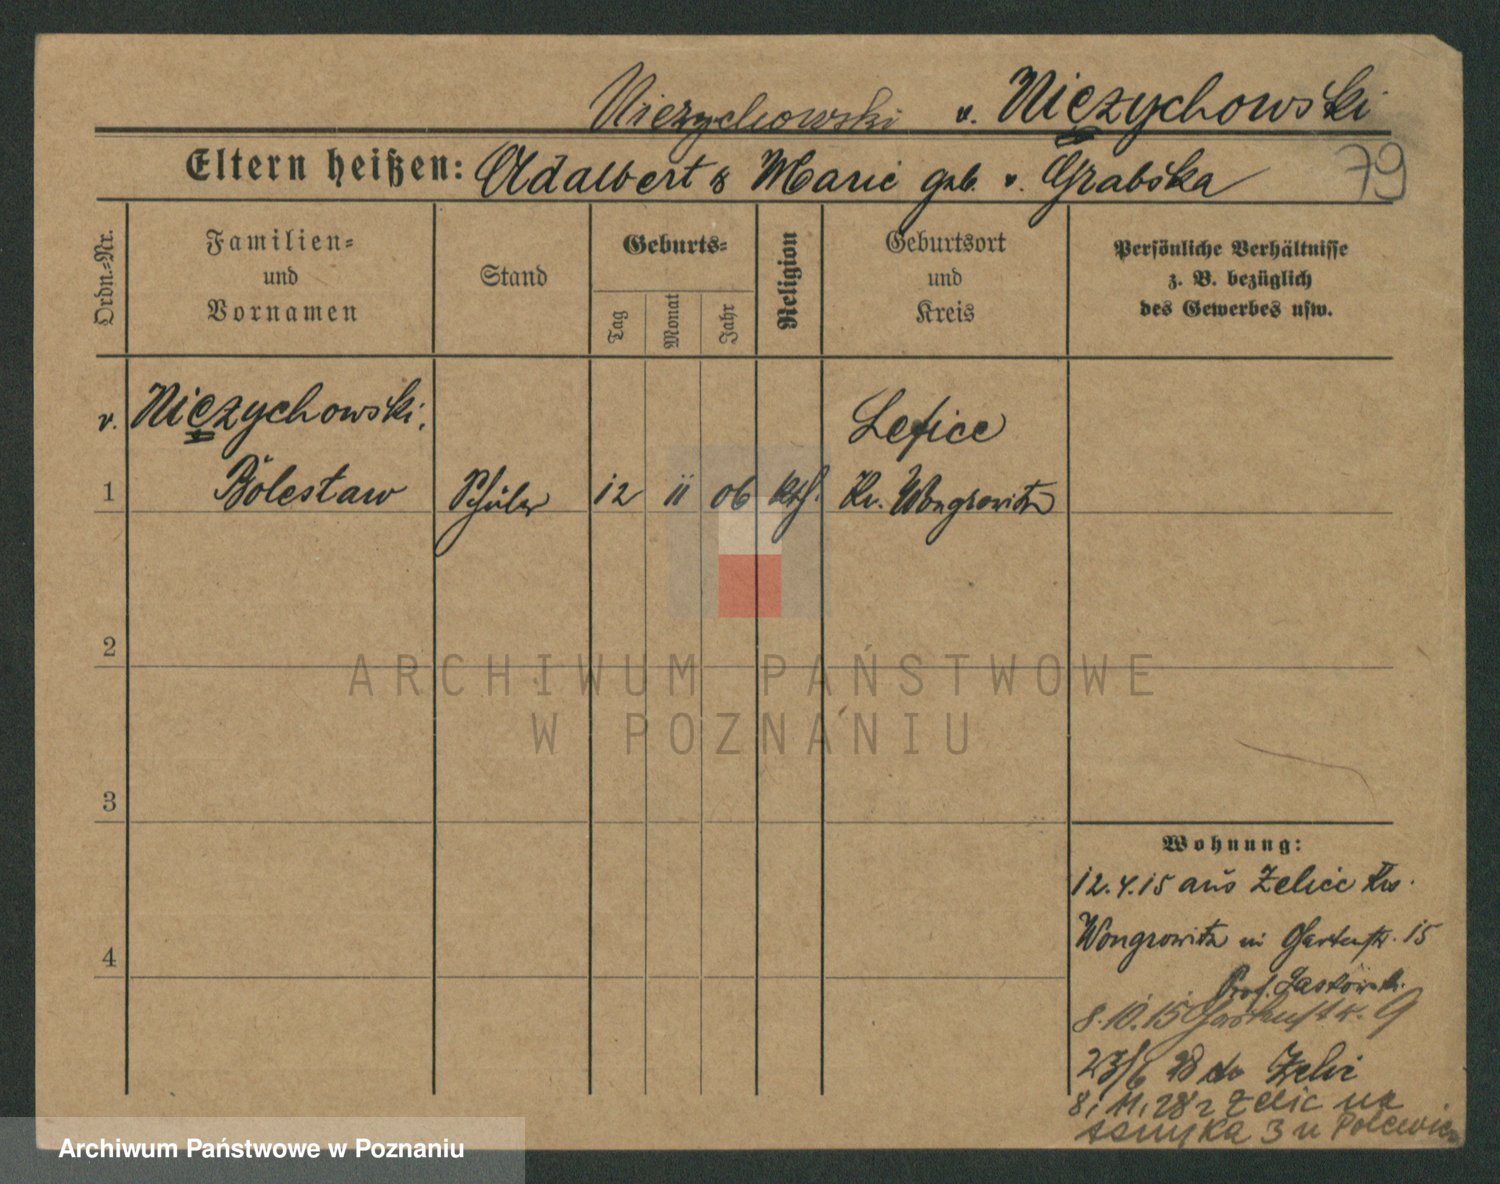 Niezychowski v. Niezychowski
Eltern heißen: Adalbert & Marie geb. v. Grabska 79
Ordn.=Nr.
Familien=
und
Vornamen
Stand
Geburts=
Tag
Monat
Jahr
Religion
Geburtsort
und
Kreis
Persönliche Verhältnisse
z. B. bezüglich
des Gewerbes usw.
v. Niezychowski,
1 Boleslaw Schüler 12 11 06 kth.
Kr. Wongrowitz
2
3
4
ARCHIWUM PAŃSTWOWE
W POZNANIU
Wohnung:
12.4.15 aus Zelice Kr.
Wongrowitz in Gartenstr. 15
Prof.
8.10.15 Gartenstr. 9
23/6 28 do Zelic
8.11.28 z Zelic na
3 u
Archiwum Państwowe w Poznaniu